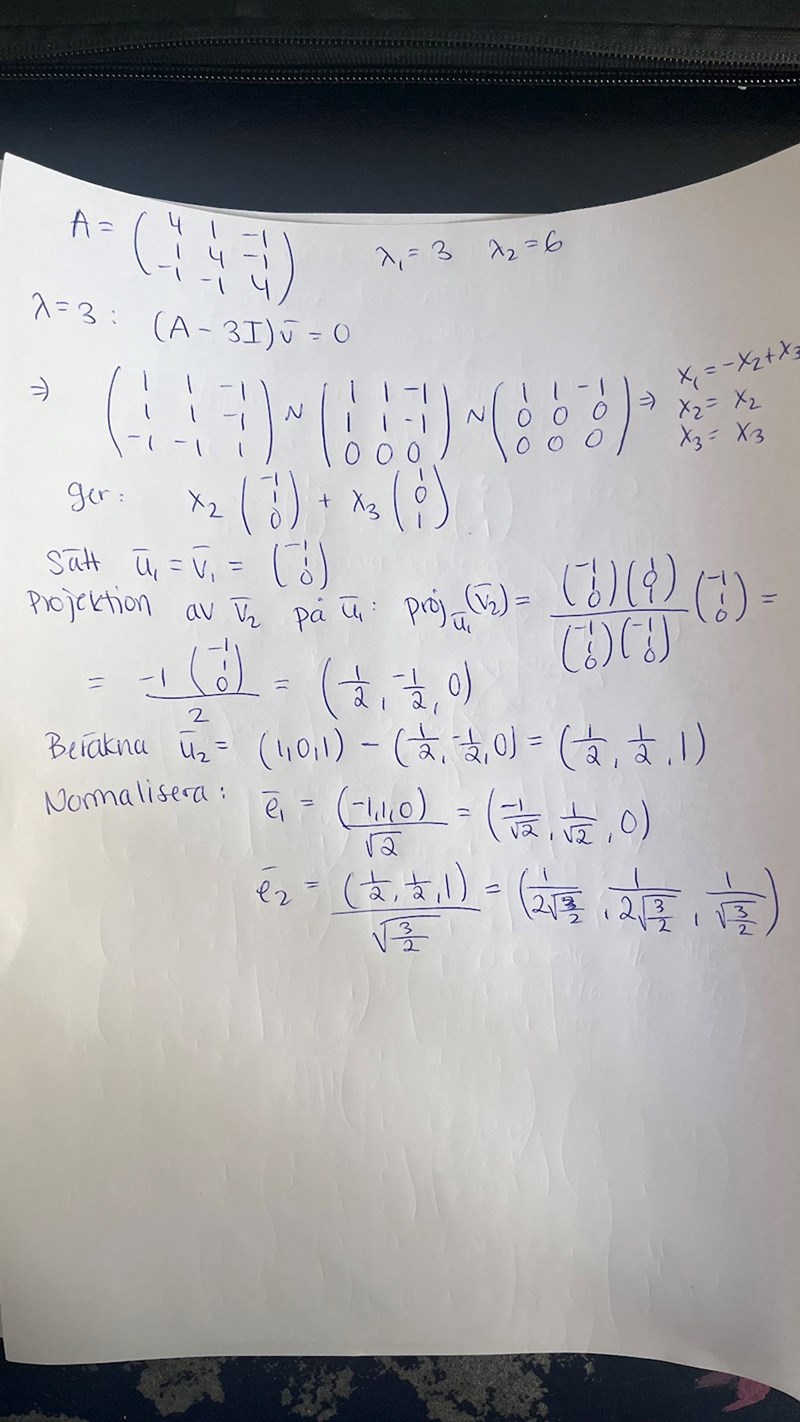 A = (4 1 -1; 1 4 -1; -1 -1 4) λ₁ = 3 λ₂ = 6
λ = 3 : (A - 3I)v̄ = 0
⇒ (1 1 -1; 1 1 -1; -1 -1 1) ~ (1 1 -1; 1 1 -1; 0 0 0) ~ (1 1 -1; 0 0 0; 0 0 0) ⇒ x₁ = -x₂ + x₃
x₂ = x₂
x₃ = x₃
ger: x₂ (-1; 1; 0) + x₃ (1; 0; 1)
Sätt ū₁ = v̄₁ = (-1; 1; 0)
Projektion av v̄₂ på ū₁: proj_ū₁(v̄₂) = (-1; 1; 0)(1; 0; 1) / (-1; 1; 0)(-1; 1; 0) (-1; 1; 0) =
= -1(-1; 1; 0) / 2 = (1/2, -1/2, 0)
Beräkna ū₂ = (1,0,1) - (1/2, -1/2, 0) = (1/2, 1/2, 1)
Normalisera: ē₁ = (-1,1,0) / √2 = (-1/√2, 1/√2, 0)
ē₂ = (1/2, 1/2, 1) / √(3/2) = (1/(2√(3/2)), 1/(2√(3/2)), 1/√(3/2))